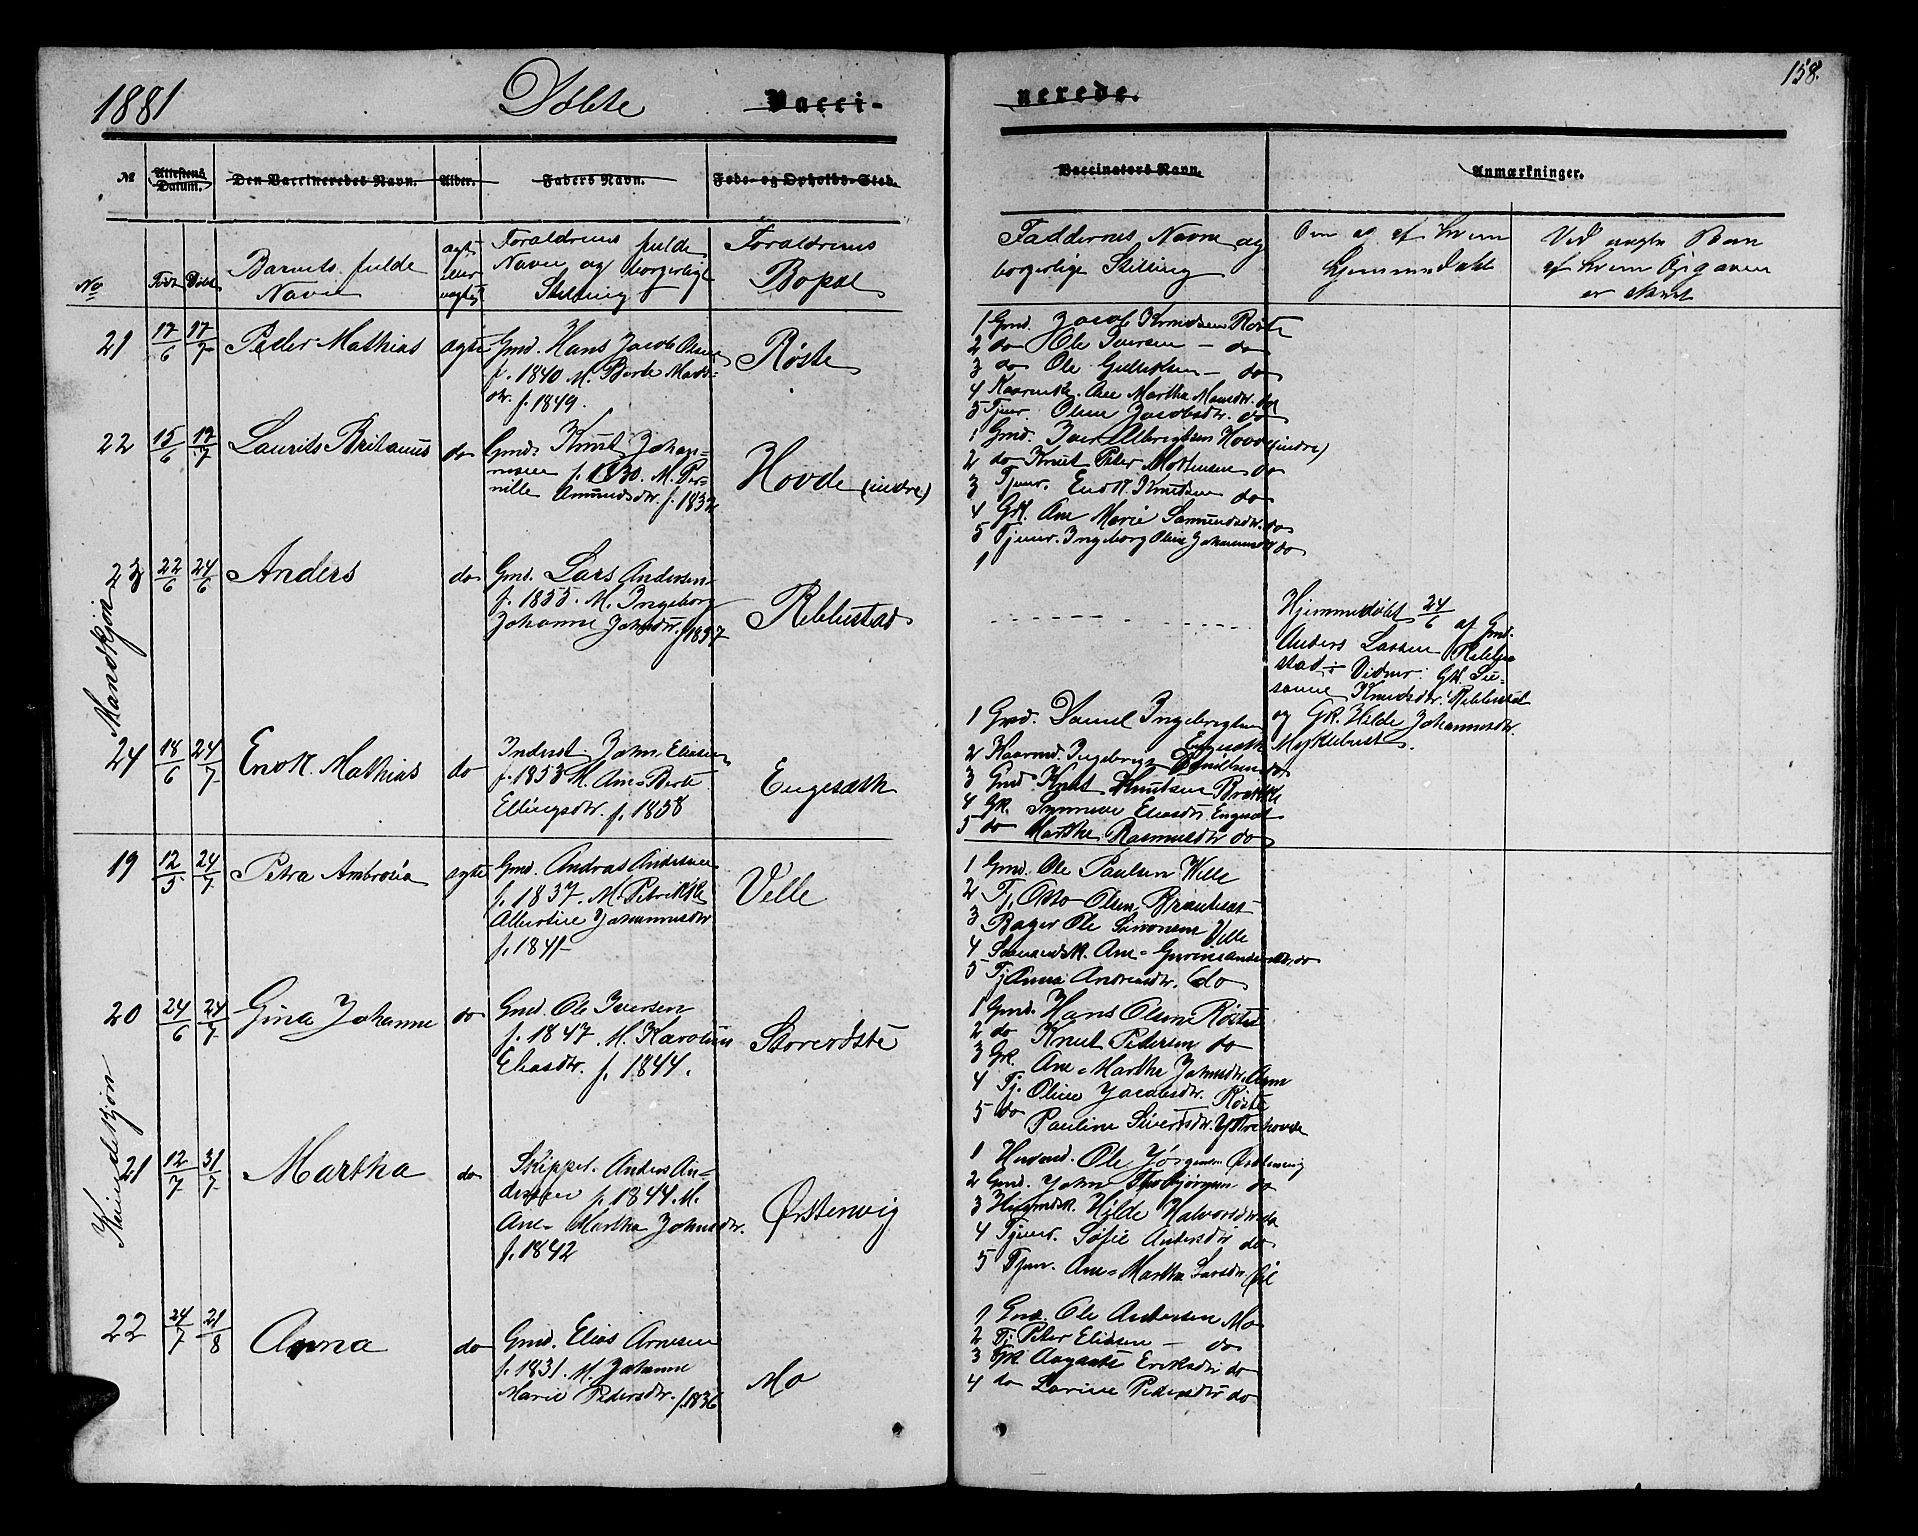 1881 Døbte Vacci-
nerede.
158.
№ Attestens Datum. Den Vaccineredes Navn. Alder. Faders Navn. Føde- og Opholds-Sted.
Vaccinators Navn. Anmærkninger.
No Født Døbt
Barnets fulde
Navn
ægte
eller
uægte
Forældrenes fulde
Navn og borgerlige
Stilling
Forældrenes
Bopæl
Faddernes Navne og
borgerlige Stilling
Om og af hvem
hjemmedøbt
Ved uægte Børn
af hvem Opgaven
er skeet
Mandkjøn
21 17/6 17/7 Peder Mathias ægte
Gmd. Hans Jacob Olsen
f. 1840 M. Berte Mads-
dtr. f. 1849.
Røste
1 Gmd. Jacob Knudsen Røste
2 do Ole Iversen - do
3 do Ole - do
4 Ane Martha do
5 Tjenr. Oline Jacobsdtr. do
22 15/6 17/7 Laurits Britanus do
Gmd. Knut Johan-
nesen f. 1830. M. Per-
nille Amundsdtr. f. 1832
Hovde (indre)
1 Gmd. Iver Albrigtsen Hovde (indre)
2 do Knut Peter Mortensen do
3 Tjenr. Enok Knudsen do
4 Gk. Ane Marie do
5 Tjenr. Ingeborg Oline do
23 22/6 24/6 Anders do
Gmd. Lars Andersen
f. 1855. M. Ingeborg
Johanne Johnsdtr. f. 1857
Ribbestad
1
Hjemmedøbt 24/6 af Gmd.
Anders Larsen Ribbe-
stad. Vidner: Gk. Su-
sanne Knudsdtr. Ribbestad
og Gk. Hilde Johannesdtr.
Myklebust.
24 18/6 24/7 Enok Mathias do
Inderst. John Eliasen
f. 1853 M. Ane Berte
Ellingsdtr. f. 1858
Engesæth
1 Gmd. Daniel Ingebrigtsen
Engesæth
2 Ingebrigt
3 Gmd Knut Knutsen
4 Gk. Synneve Eliasdtr. Engesæt
5 do Marthe Rasmusdtr do
Kvindekjøn
19 12/5 24/7 Petra Ambrosia ægte
Gmd. Andras Andersen
f. 1837. M. Petrikke
Albertine Johannesdtr
f. 1841
Velle
1 Gmd. Ole Paulsen Velle
2 Tj. Olsen
3 Ole Simonsen Velle
4 Ane do
5 Tj Anna Andreasdtr. do
20 24/6 24/7 Gina Johanne do
Gmd. Ole Iversen
f. 1847. M. Karoline
Eliasdtr. f. 1844.
Storerøste
1 Gmd. Hans Olsen Røste
2 do Knut Pedersen do
3 Gk. Ane Marthe Johnsdtr.
4 Tj. Oline Jacobsdtr. Røste
5 do Pauline Sivertsdtr. Ytrehovde
21 12/7 31/7 Martha do
Skipper. Anders An-
dersen f. 1844. M.
Ane Martha Johnsdtr.
f. 1842
Ørstenvig
1 Husmd. Ole Jørgensen Ørstenvig
2 Gmd. John Thorbjørnsen do
3 Hilde Halvorsdtr do
4 Tjenr. Sofie Andersdtr do
5 Tjenr. Ane Martha Larsdtr
22 24/7 21/8 Anna do
Gmd. Elias Arnesen
f. 1831. M. Johanne
Marie Pedersdtr. f. 1836
Mo
1 Gmd. Ole Andersen Mo
2 Tj Peter Eliasen - do
3 Gk. Eriksdtr do
4 do Larine Pedersdtr do